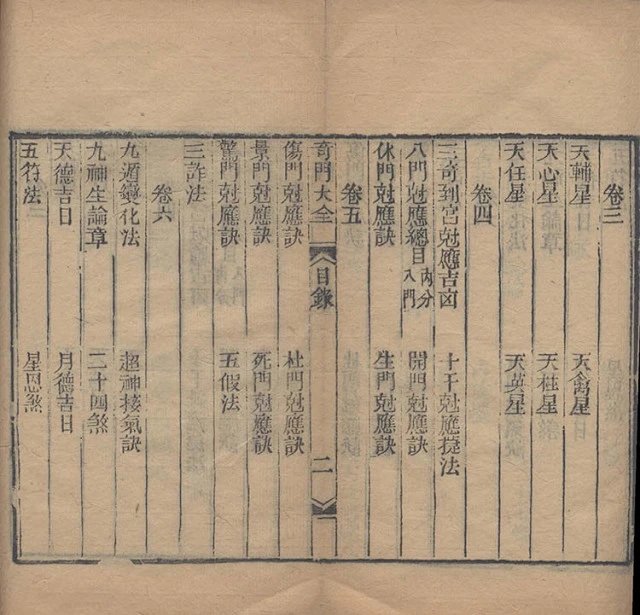 卷三
天輔星　天禽星
天心星　天柱星
天任星　天英星
卷四
三奇到宮尅應吉凶　十干尅應捷法
八門尅應總目內分八門　開門尅應訣
休門尅應訣　生門尅應訣
卷五
奇門大全　目錄　二
傷門尅應訣　杜門尅應訣
景門尅應訣　死門尅應訣
驚門尅應訣　五假法
三詐法
卷六
九遁變化法　超神接氣訣
九神生論章　二十四煞
天德吉日　月德吉日
五符法　星恩煞